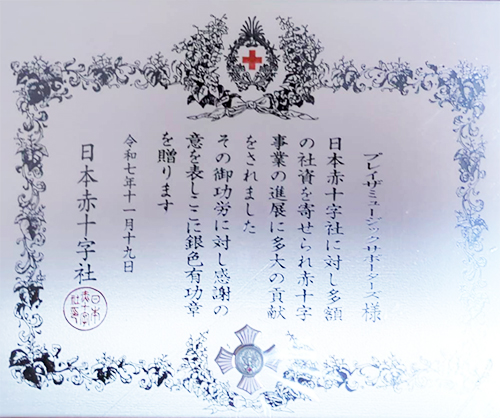 プレイザミュージックサポーターズ 様
日本赤十字社に対し多額
の社資を寄せられ赤十字
事業の進展に多大の貢献
をされました
その御功労に対し感謝の
意を表しここに銀色有功章
を贈ります
令和七年十一月十九日
日本赤十字社